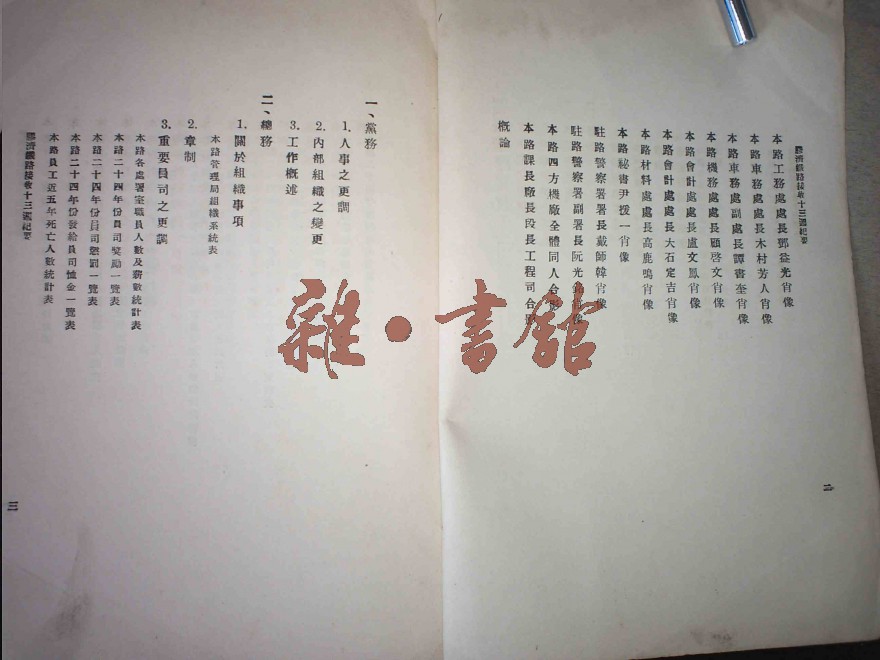 膠濟鐵路接收十三週紀要
本路工務處處長鄧益光肖像
本路車務處處長木村芳人肖像
本路車務處副處長譚書奎肖像
本路機務處處長顧啓文肖像
本路會計處處長大石定吉肖像
本路會計處處長盧文鳳肖像
本路材料處處長高鹿鳴肖像
本路秘書尹援一肖像
駐路警察署署長戴師韓肖像
駐路警察署副署長阮光肖像
本路四方機廠全體同人合影
本路課長廠長段長工程司合
概論
二
一、黨務
1.人事之更調
2.內部組織之變更
3.工作概述
二、總務
1.關於組織事項
本路管理局組織系統表
2.章制
3.重要員司之更調
本路各處署室職員人數及薪數統計表
本路二十四年份員司獎勵一覽表
本路二十四年份員司懲罰一覽表
本路二十四年份發給員司恤金一覽表
本路員工近五年死亡人數統計表
膠濟鐵路接收十三週紀要
三
雜·書館